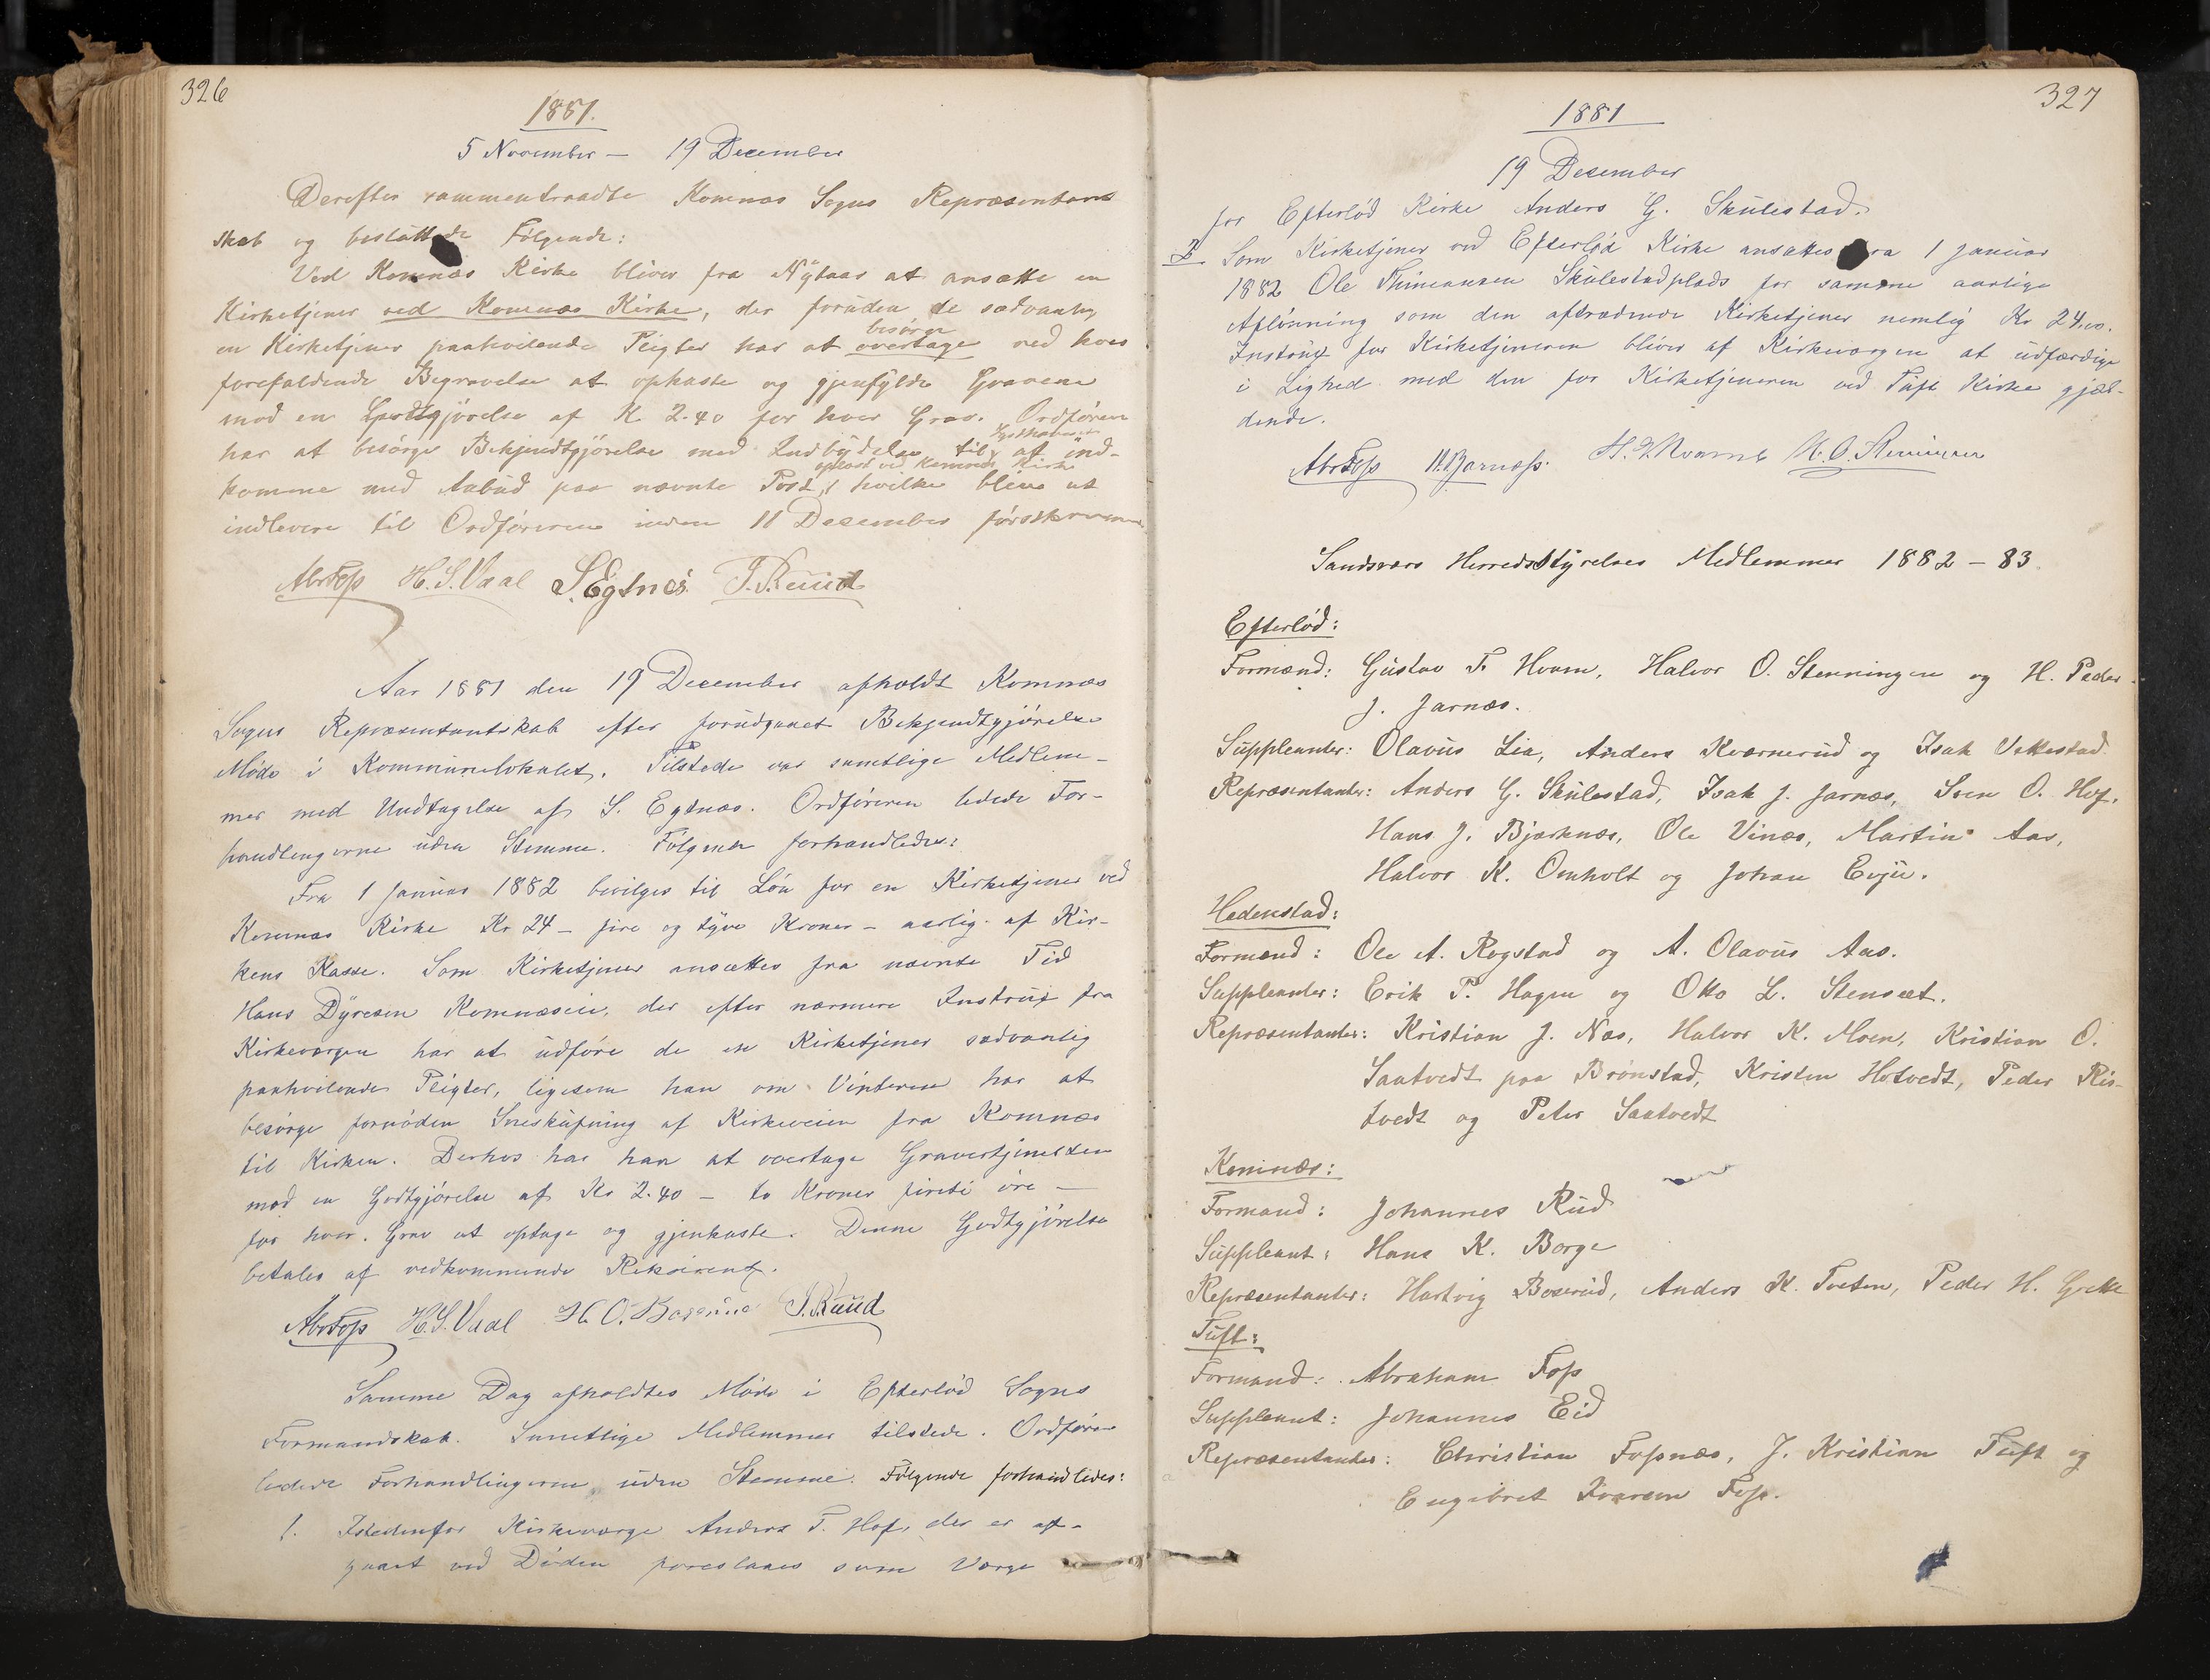 326
1881.
5 November – 19 December
Derefter sammentraadte Komnæs Sogns Repræsentant
skab og besluttede Følgende:
Ved Komnæs Kirke bliver fra Nytaar at ansætte en
Kirketjener ved Komnæs Kirke, der foruden de sædvanlig
en Kirketjener paahvilende Pligter har at overtage ved hver
besørge
forefaldende Begravelse at ophaste og gjenfylde Gravene
mod en Godtgjørelse af K. 2.40 for hver Grav. Ordføreren
har at besørge Bekjendtgjørelse med Indbydelse til at ind-
komme med Anbud paa nævnte Post, hvilke blive at
opslaaet ved Komnæs Kirke
indlevere til Ordføreren inden 11 December førstkommende
AbrFoss H.S.Vaal S.Egtnes. J.Ruud
Aar 1881 den 19 December afholdt Komnæs
Sogns Repræsentantskab efter forudgaaet Bekjendtgjørelse
Møde i Kommunelokalet. Tilstede var samtlige Medlem-
mer med Undtagelse af S. Egtnæs. Ordføreren ledede For-
handlingerne uden Stemme. Følgende forhandledes:
Fra 1 Januar 1882 bevilges til Løn for en Kirketjener ved
Komnæs Kirke Kr 24 – fire og tyve Kroner – aarlig af Kir-
kens Kasse. Som Kirketjener ansættes fra nævnte Tid
Hans Dyresen Komnæseie, der efter nærmere Instrux fra
Kirkeværgen har at udføre de en Kirketjener sædvanlig
paahvilende Pligter, ligesom han om Vinteren har at
besørge fornøden Sneskufning af Kirkeveien fra Komnæs
til Kirken. Derhos har han at overtage Gravertjenesten
mod en Godtgjørelse af Kr 2.40 – to Kroner firti øre –
for hver Grav at optage og gjenkaste. Denne Godtgjørelse
betales af vedkommende Rekvirent.
AbrFoss H.S.Vaal H.O.Boserud J.Ruud
Samme Dag afholdtes Møde i Eftelød Sogns
Formandskab. Samtlige Medlemmer tilstede. Ordføreren
ledede Forhandlingerne uden Stemme. Følgende forhandledes:
1. Istedenfor Kirkeværge Anders T. Hof, der er af-
gaaet ved Døden foreslaaes som Værge
327
1881
19 Desember
for Eftelød Kirke Anders G. Skulestad.
2. Som Kirketjener ved Eftelød Kirke ansættes fra 1 Januar
1882 Ole Skulestadplads for samme aarlige
Aflønning som den aftrædende Kirketjener nemlig Kr 24.00.
Instrux for Kirketjeneren bliver af Kirkeværgen at udfærdige
i Lighed med den for Kirketjeneren ved Tuft Kirke gjæl-
dende.
AbrFoss H.Jarnæss. G.T.Hvamb H.O.Stenningen
Sandsværs Herredsstyrelses Medlemmer 1882 – 83.
Eftelød:
Formænd: Gustav T. Hvam, Halvor O. Stenningen og H. Peder
J. Jarnæs.
Suppleanter: Olavus Lia, Anders Kværnerud og Isak Vekkestad.
Repræsentanter: Anders G. Skulestad, Isak J. Jarnæs, Sven O. Hof,
Hans J. Bjerknæs, Ole Vinæs, Martin Aas,
Halvor K. Omholt og Johan Evju.
Hedenstad:
Formænd: Ole A. Rogstad og A. Olavus Aas.
Suppleanter: Erik P. Hagen og Otto L. Stenseet.
Repræsentanter: Kristian J. Næs, Halvor K. Moen, Kristian O.
Saatvedt paa Brønstad, Kristen Hotvedt, Peder Kis-
tvedt og Peter Saatvedt
Komnæs:
Formand: Johannes Rud
Suppleant: Hans K. Borge
Repræsentanter: Hartvig Boserud, Anders K. Tveten, Peder H. Grette
Tuft:
Formand: Abraham Foss
Suppleant: Johannes Eid
Repræsentanter: Christian Fossnæs, J. Kristian Tuft og
Engebret Iversen Foss.